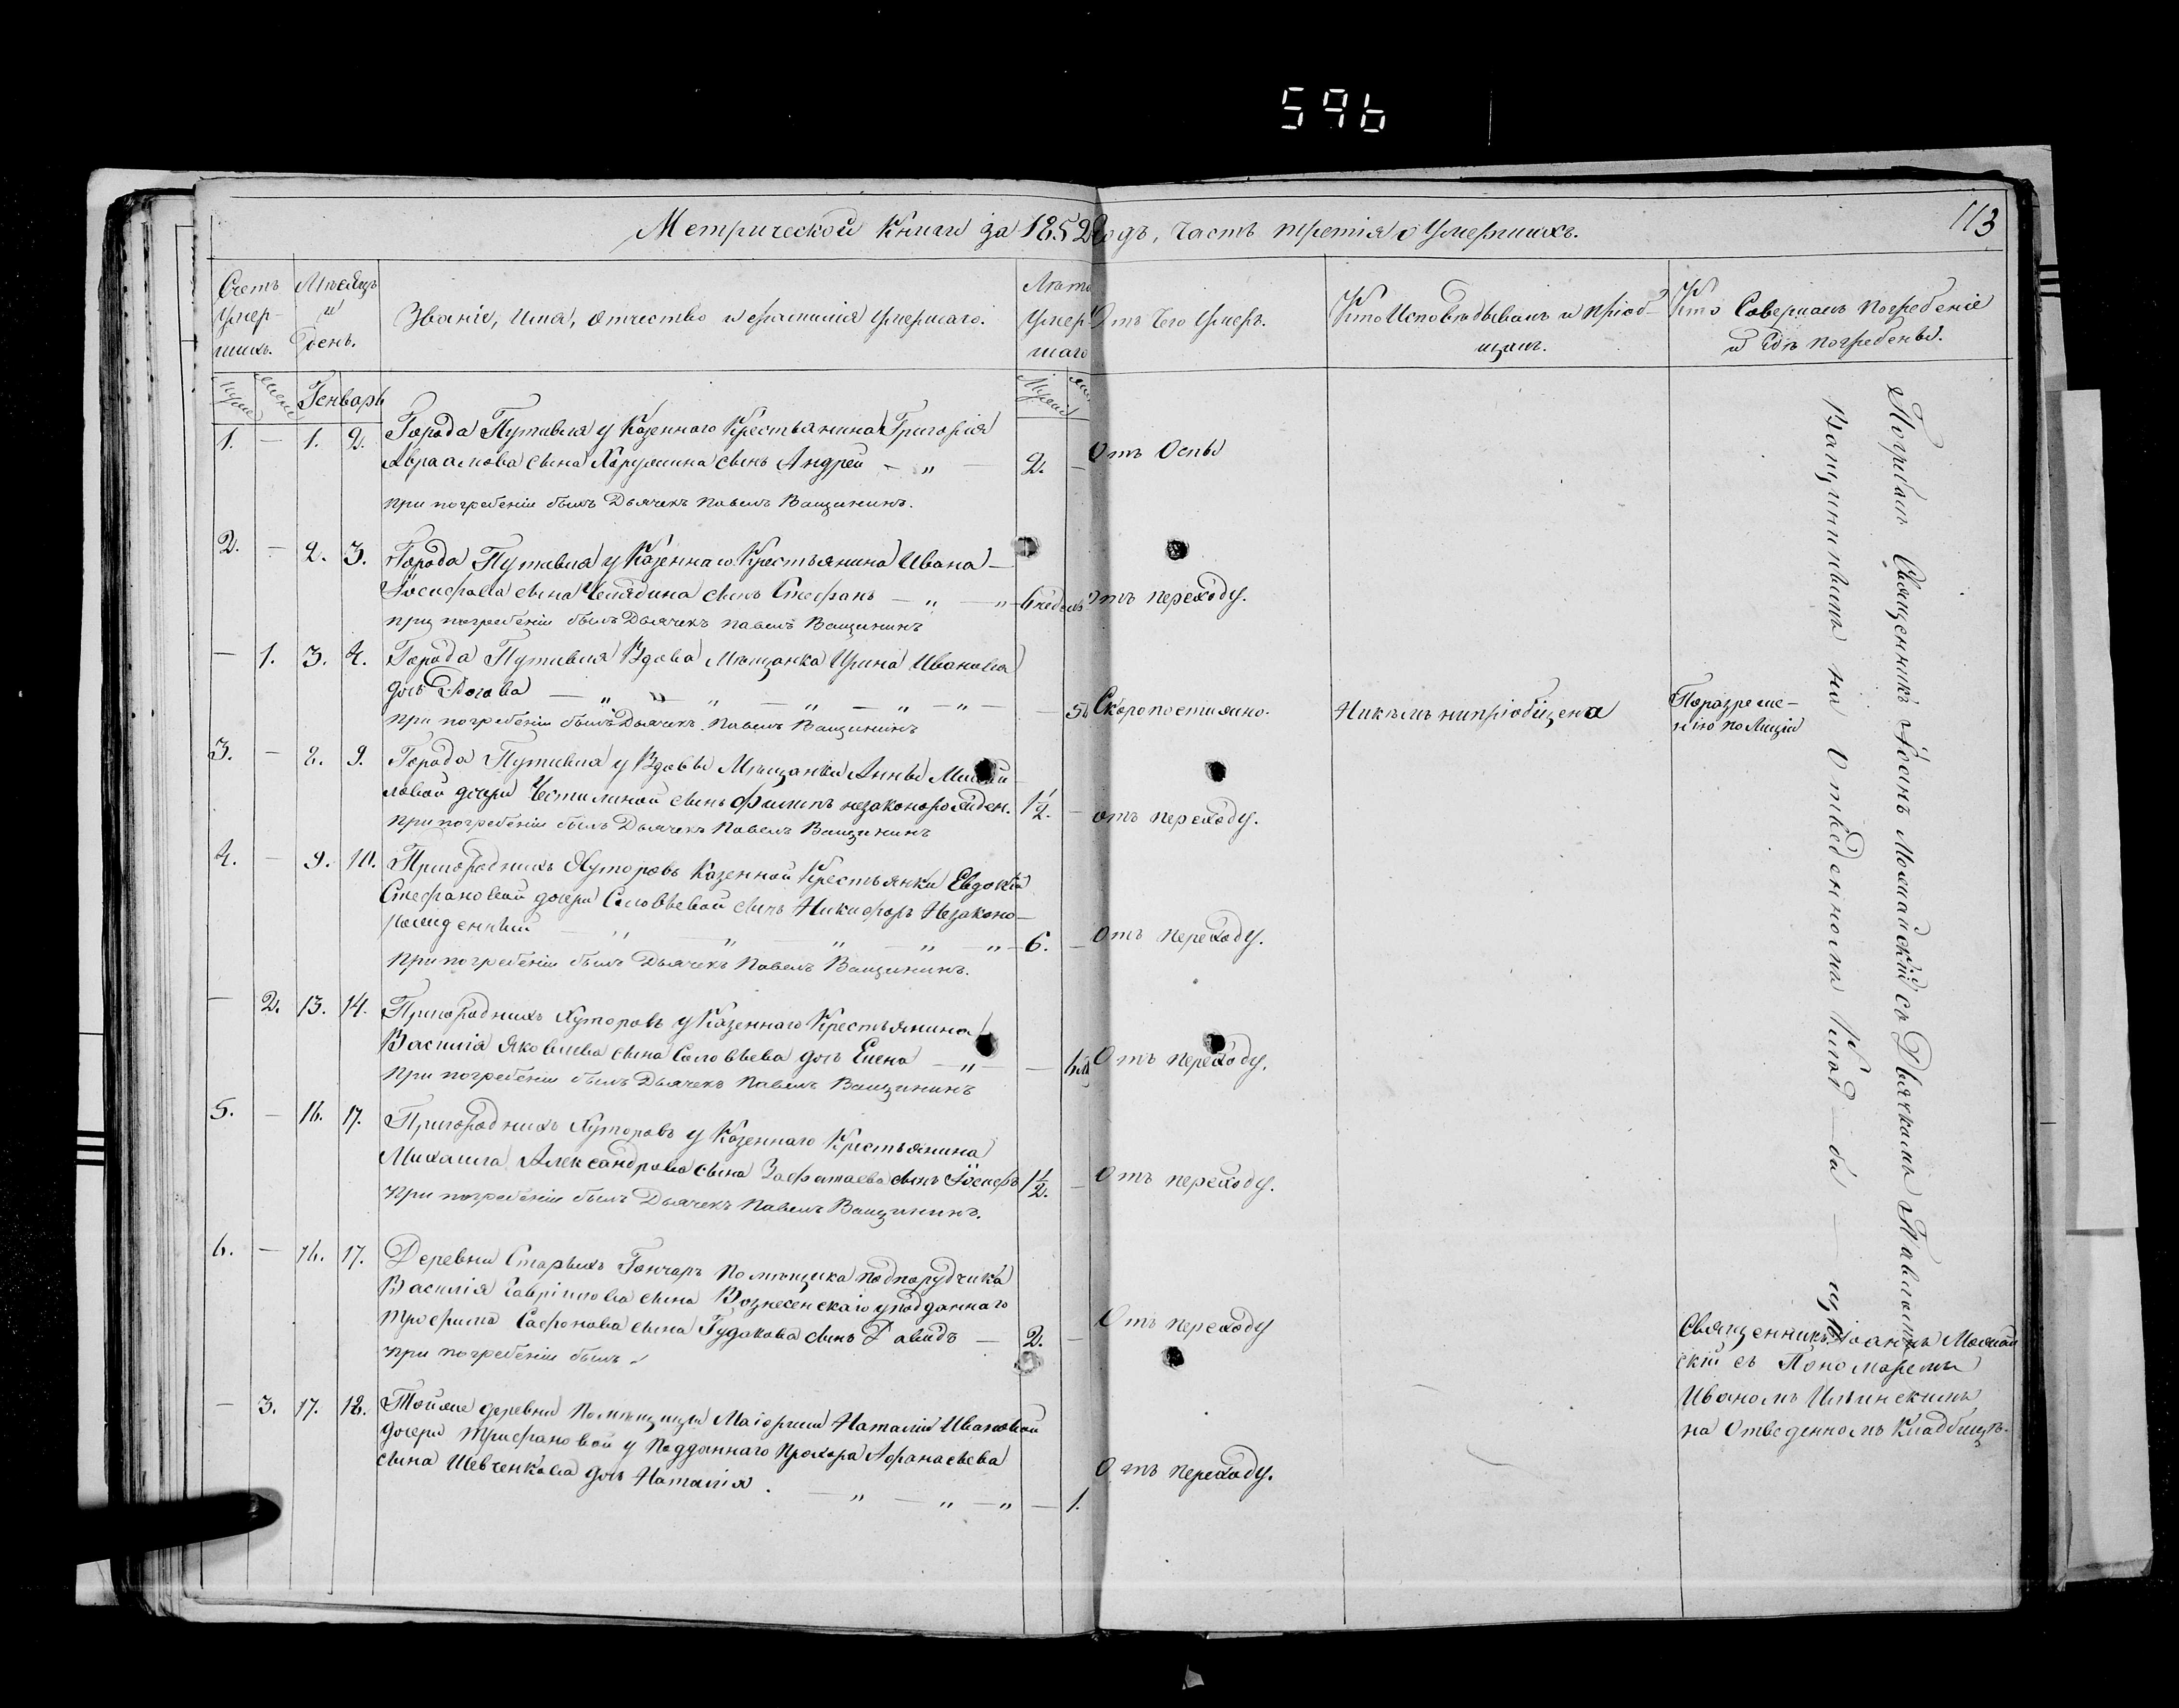 596
113
Метрической Книги за 1852 Годъ, Часть третія о Умершихъ.
Счетъ Умер-шихъ.
Мѣсяцъ и День.
Званіе, Имя, Отчество и фамилія Умершаго.
Лѣта Умер-шаго
Отъ Чего Умеръ.
Кто Исповѣдывалъ и Пріоб-щалъ.
Кто Совершалъ Погребеніе и Гдѣ погребены.
Генварь
1. — 1. 2. Города Путивля у Казеннаго Крестьянина Григорія
Авраамова сына сынъ Андрей — „ — 2. — Отъ Оспы
при погребеніи былъ Дьячекъ Павелъ Ващининъ.
2. — 2. 3. Города Путивля у Казеннаго Крестьянина Ивана —
Іосифова сына Челядина сынъ Стефанъ — „ — „ — 6 недель Отъ переходу.
при погребеніи былъ Дьячекъ павелъ Ващининъ
— 1. 3. 4. Города Путивля Вдова Мѣщанка Ирина Иванова
дочь — „ — „ — „ — „ — „ — Скоропостижно. Никѣмъ нипріобщена Поразреше-
нію полиціи
при погребеніи былъ Дьячекъ. Павелъ Ващининъ
3. — 8. 9. Города Путивля у Вдовы Мѣщанки Анны
ловой дочери сынъ филипъ незаконорожден. 1½. — отъ переходу.
при погребеніи былъ Дьячекъ Павелъ Ващининъ
4. — 9. 10. Пригородныхъ Хуторовъ Казенной Крестьянки Евдокіи
Стефановой дочери Соловьевой сынъ Никифоръ Незаконо-
рожденный — „ — „ — „ — „ — „ — 6. — Отъ переходу.
При погребеніи былъ Дьячекъ Павелъ Ващининъ.
— 2. 13. 14. Пригородныхъ Хуторовъ у Казеннаго Крестьянина
Василія Яковлева сына Соловьева дочь Елена — „ — Отъ переходу.
при погребеніи былъ Дьячекъ Павелъ Ващининъ
5. — 16. 17. Пригородныхъ Хуторовъ у Казеннаго Крестьянина
Михаила Александрова сына сынъ Іосифъ 1½. — Отъ переходу.
при погребеніи былъ Дьячекъ Павелъ Ващининъ.
6. — 16. 17. Деревни Старыхъ Гончаръ Помѣщика подпорудчика
Василія Гавріилова сына Вознесенскаго у подданнаго
Трофима Сафонова сына Гудакова сынъ Давидъ — 2. — Отъ переходу
при погребеніи былъ
— 3. 17. 18. Тойже деревни Помѣщицы Маіорши Наталіи Ивановой
дочери Трифановой у Подданнаго Прохора Афанасьева
сына Шевченкова дочь Наталія. — „ — „ — „ — 1. Отъ переходу.
Погребалъ Священникъ Іоанъ Можайскій съ Дьячкомъ Павломъ
Ващининымъ на Отведенномъ Клад-би-щѣ
Священникъ Іоаннъ Можай
скій съ Пономаремъ
Иваномъ Ильинскимъ
на Отведенномъ Кладбищѣ.